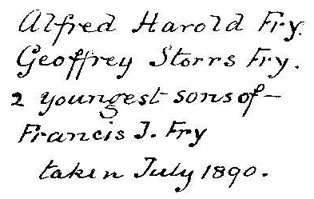 Alfred Harold Fry.
Geoffrey Storrs Fry.
2 youngest sons of—
Francis J. Fry
taken July 1890.